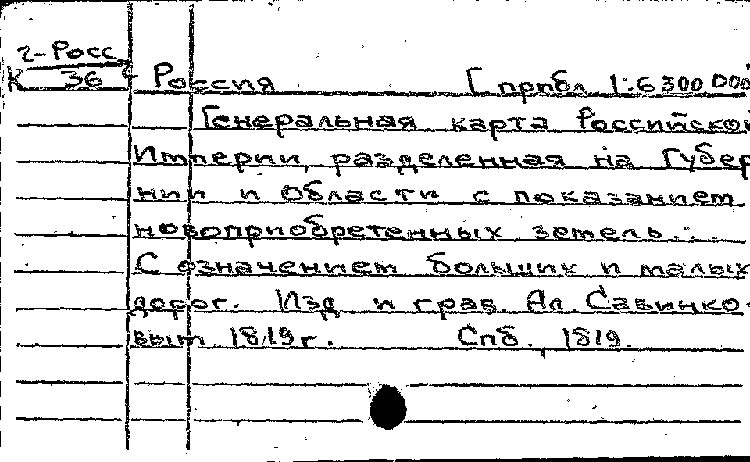 2-Росс
К 36
Россия [прибл 1:6 300 000
Генеральная карта Российской
Империи, разделенная на Губер
нии и области с показанием
новоприобретенных земель...
С означением больших и малых
дорог. Изд и грав. Ал. Савинко-
вым 1819 г. Спб., 1819.